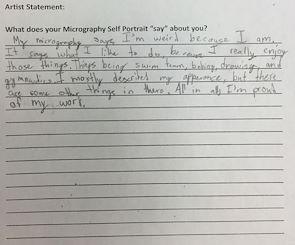 Artist Statement:
What does your Micrography Self Portrait "say" about you?
My micrography says I'm weird because I am,
It says what I like to do, because I really enjoy
those things. Things being swim team, baking, drawing, and
gymnastics. I mostly described my apperance, but there
are some other things in there. All in all, I'm proud
of my work.